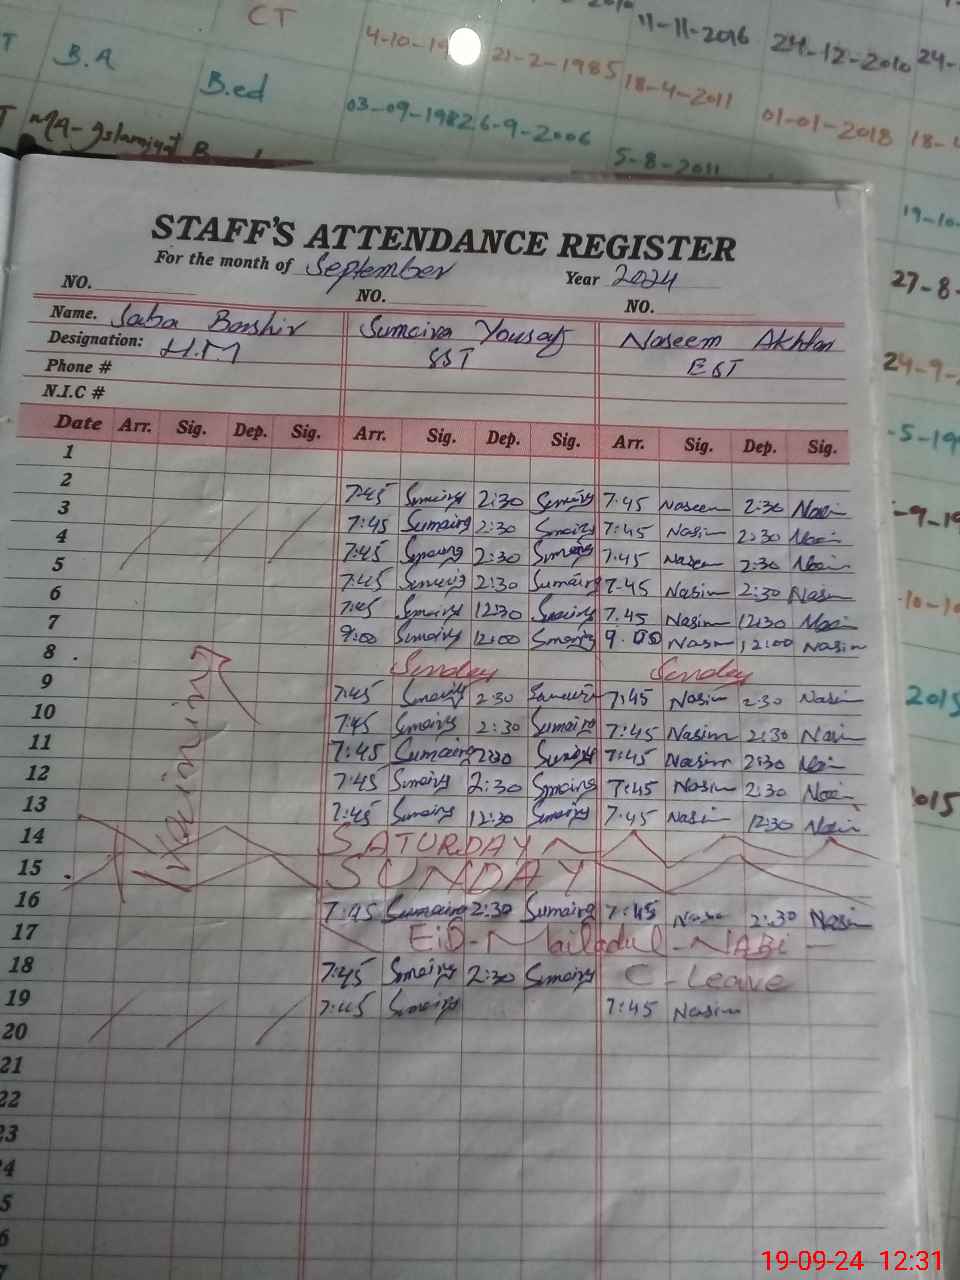 CT
11-11-2016 24-12-2010 24-
T B.A 4-10-19 21-2-1985 18-4-2011
B.ed 03-09-1982 6-9-2006 01-01-2018 18-
T MA-Islamiyat
5-8-2011
19-10-
27-8-
24-9-
-5-19
-9-19
-10-10
2015
2015
STAFF'S ATTENDANCE REGISTER
For the month of September Year 2024
NO. NO. NO.
Name. Saba Bashir Sumaira Yousaf Naseem Akhtar
Designation: H.M SST EST
Phone #
N.I.C #
Date Arr. Sig. Dep. Sig. Arr. Sig. Dep. Sig. Arr. Sig. Dep. Sig.
1
2 7:45 Sumaira 2:30 Sumaira 7:45 Naseem 2:30 Nasim
3 7:45 Sumaira 2:30 Sumaira 7:45 Nasim 2:30 Nasim
4 7:45 Sumaira 2:30 Sumaira 7:45 Naseem 2:30 Nasim
5 7:45 Sumaira 2:30 Sumaira 7-45 Nasim 2:30 Nasim
6 7:45 Sumaira 12:30 Sumaira 7.45 Nasim 12:30 Nasim
7 9:00 Sumaira 12:00 Sumaira 9.00 Nasim 12:00 Nasim
8 . Sunday Sunday
9 7:45 Sumaira 2:30 Sumaira 7:45 Nasim 2:30 Nasim
10 7:45 Sumaira 2:30 Sumaira 7:45 Nasim 2:30 Nasim
11 7:45 Sumaira 2:30 Sumaira 7:45 Nasim 2:30 Nasim
12 7:45 Sumaira 2:30 Sumaira 7:45 Nasim 2:30 Nasim
13 7:45 Sumaira 12:30 Sumaira 7:45 Nasim 12:30 Nasim
14 SATURDAY
15 . SUNDAY
16 7:45 Sumaira 2:30 Sumaira 7:45 Nasim 2:30 Nasim
17 EiD-Meiladul-NABi
18 7:45 Sumaira 2:30 Sumaira C-Leave
19 7:45 Sumaira 7:45 Nasim
20
21
22
23
4
5
6
7
19-09-24 12:31